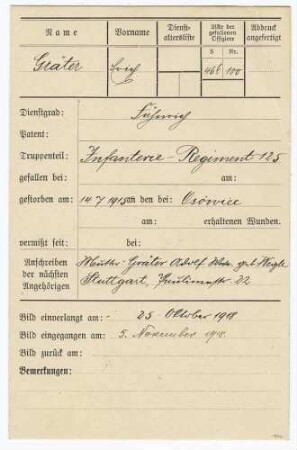 Name Vorname Dienst-altersliste Liste der gefallenen Offiziere Abdruck angefertigt
S Nr.
Gräter Erich 46t 100
Dienstgrad: Fähnrich
Patent:
Truppenteil: Infanterie-Regiment 125
gefallen bei: am:
gestorben am: 14 7 1915 an den bei: Osowice
am: erhaltenen Wunden.
vermißt seit: bei:
Anschreiben Mutter: Gräter Adolf Wwe. geb. Weigle
der nächsten Stuttgart, 22
Angehörigen
Bild einverlangt am: 25 Oktober 1918
Bild eingegangen am: 5. November 1918.
Bild zurück am:
Bemerkungen: